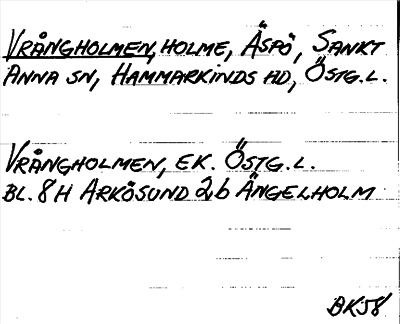 VRÅNGHOLMEN, HOLME, ÄSPÖ, SANKT
ANNA SN, HAMMARKINDS HD, ÖSTG.L.
VRÅNGHOLMEN, EK. ÖSTG.L.
BL. 8H ARKÖSUND 2b ÄNGELHOLM
BK58